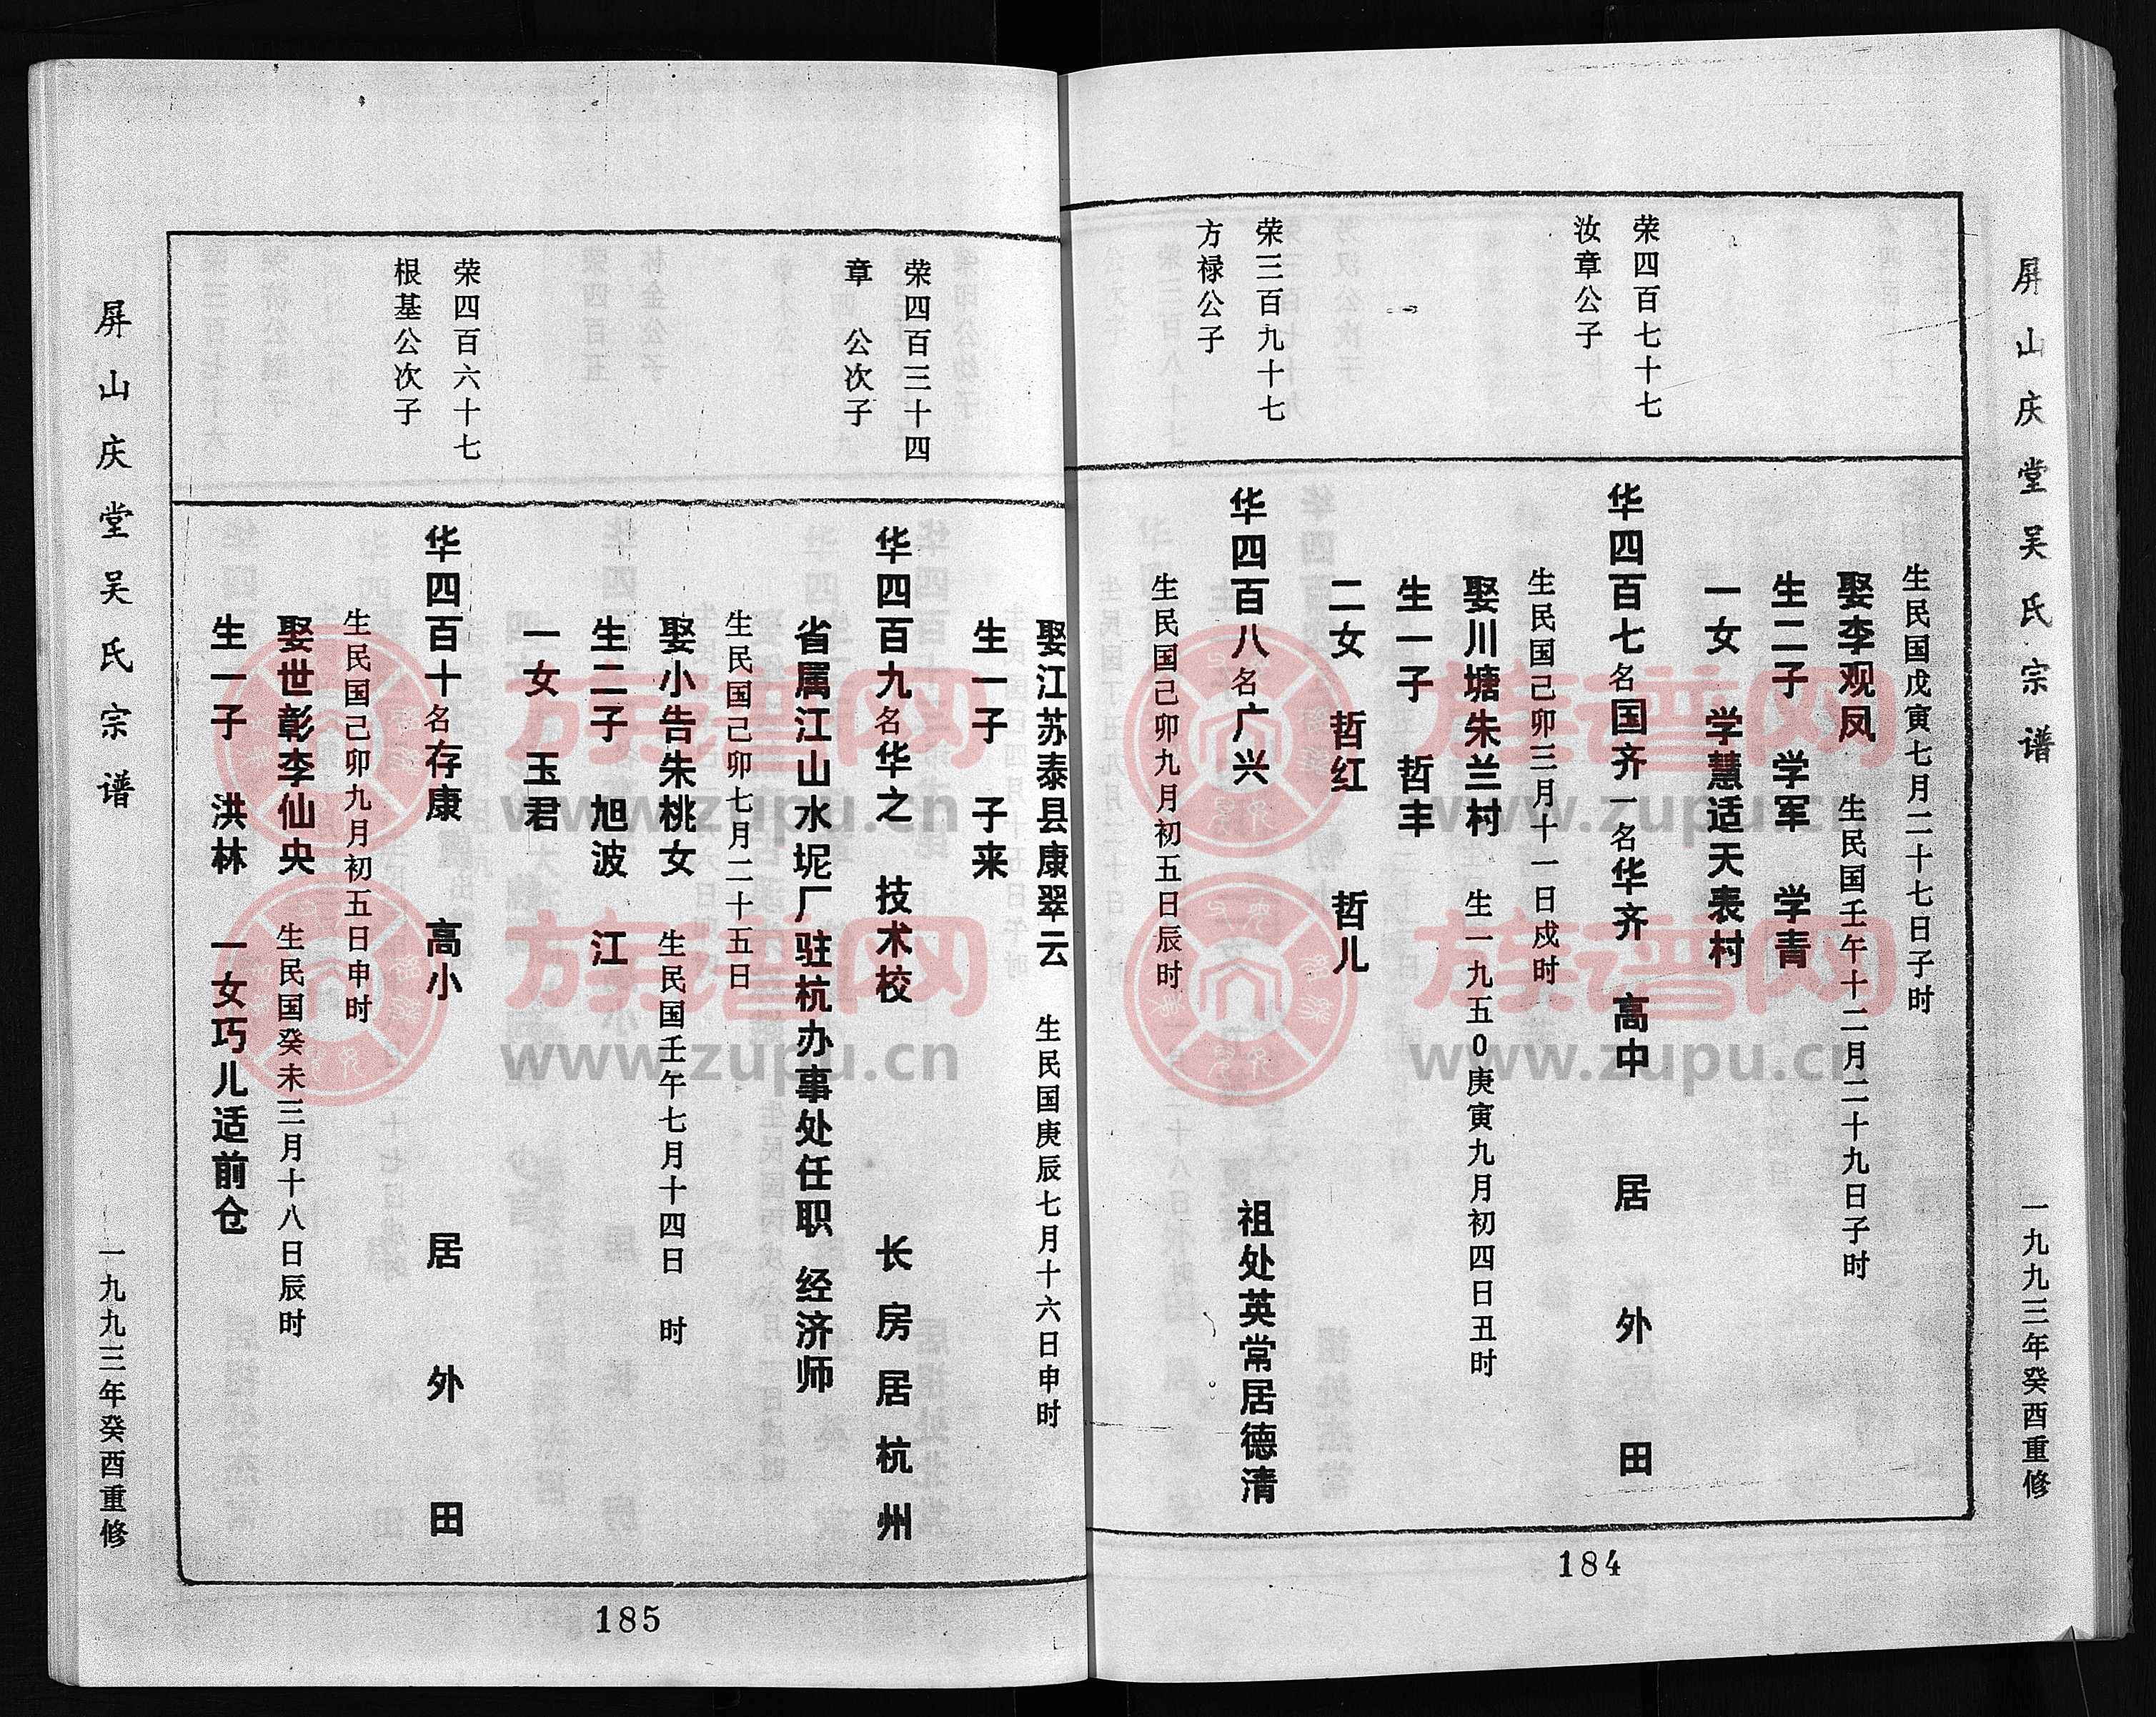 屏山庆堂吴氏宗谱
一九九三年癸酉重修
生民国戊寅七月二十七日子时
娶李观凤 生民国壬午十二月二十九日子时
生二子 学军 学青
一女 学慧适天表村
荣四百七十七
汝章公子
华四百七名国齐一名华齐 高中 居外田
生民国己卯三月十一日戍时
娶川塘朱兰村 生一九五0庚寅九月初四日丑时
生一子 哲丰
二女 哲红 哲儿
荣三百九十七
方禄公子
华四百八名广兴 祖处英常居德清
生民国己卯九月初五日辰时
184
娶江苏泰县康翠云 生民国庚辰七月十六日申时
生一子 子来
荣四百三十四
章 公次子
华四百九名华之 技术校 长房居杭州
省属江山水坭厂驻杭办事处任职 经济师
生民国己卯七月二十五日
娶小告朱桃女 生民国壬午七月十四日 时
生二子 旭波 江
一女 玉君
荣四百六十七
根基公次子
华四百十名存康 高小 居外田
生民国己卯九月初五日申时
娶世彰李仙央 生民国癸未三月十八日辰时
生一子 洪林 一女巧儿适前仓
屏山庆堂吴氏宗谱
一九九三年癸酉重修
185
族谱网
www.zupu.cn
族谱网
www.zupu.cn
族谱网
www.zupu.cn
族谱网
www.zupu.cn